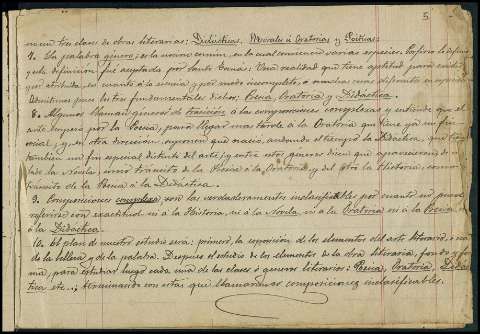 5
tres clases de obras literarias: Didácticas, Morales ú Oratorias y Poéticas.
7. La palabra género, es la noción común, en la cual convienen varias especies. Porfirio le define
y esta definición fué aceptada por Santo Tomás: Una realidad que tiene aptitud para existir
por entero, en cuanto á la esencia y por modo incompleto, o muchas cosas diferentes en especie.
pues los tres fundamentales dichos, Poesía, Oratoria y Didáctica.
8. Algunos llaman géneros de transición á las composiciones complexas y entiende que el
arte empieza por la Poesía, para llegar mas tarde á la Oratoria que tiene ya un fin
social, y en otra dirección, suponen que nació, andando el tiempo la Didáctica, que tiene
también un fin especial distinto del arte; y entre estos géneros dicen que aparecieron de un
lado la Novela, como tránsito de la Poesía á la Oratoria y del otro la Historia, como
tránsito de la Poesía á la Didáctica.
9. Composiciones complexas son las verdaderamente inclasificables por cuanto no pueden
referirse con exactitud ni á la Historia, ni á la Novela ni á la Oratoria ni á la Poesía ni
á la Didáctica.
10. El plan de nuestro estudio será: primero, la exposición de los elementos del arte literario,
de la belleza y de la palabra. Después el estudio de los elementos de la obra literaria, fondo y for-
ma, para estudiar luego cada una de las clases ó géneros literarios: Poesía, Oratoria, Didác-
tica etc..; terminando con estas que llamaremos composiciones inclasificables.